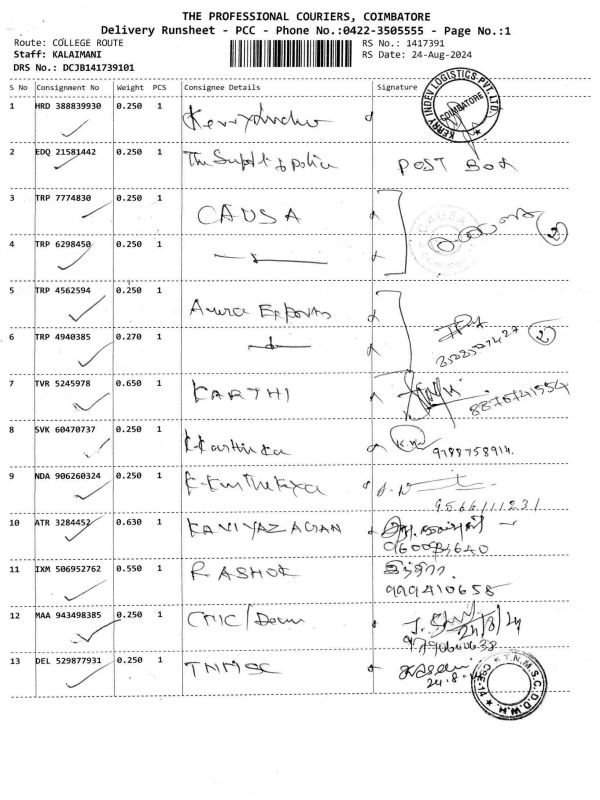 THE PROFESSIONAL COURIERS, COIMBATORE
Delivery Runsheet - PCC - Phone No.:0422-3505555 - Page No.:1
Route: COLLEGE ROUTE RS No.: 1417391
Staff: KALAIMANI RS Date: 24-Aug-2024
DRS No.: DCJB141739101
S No Consignment No Weight PCS Consignee Details Signature
KERRY INDEV LOGISTICS PVT. LTD. COIMBATORE
1 HRD 388839930 0.250 1
2 EDQ 21581442 0.250 1 The Supdt of police POST BOX
3 TRP 7774830 0.250 1 CAUSA
CAUSA
2
4 TRP 6298450 0.250 1
5 TRP 4562594 0.250 1 Aura Exports
2
6 TRP 4940385 0.270 1
7 TVR 5245978 0.650 1 KARTHI
8 SVK 60470737 0.250 1 Karthika
9788758914.
9 NDA 906260324 0.250 1
9566111231
10 ATR 3284452 0.630 1 KAVIYAZAGAN
11 IXM 506952762 0.550 1 R ASHOK
999410658
12 MAA 943498385 0.250 1 CMC/Dean
24/8/24
9790600638
13 DEL 529877931 0.250 1 TNMSC
24.8.
T.N.M.S.C.D.D.W.H